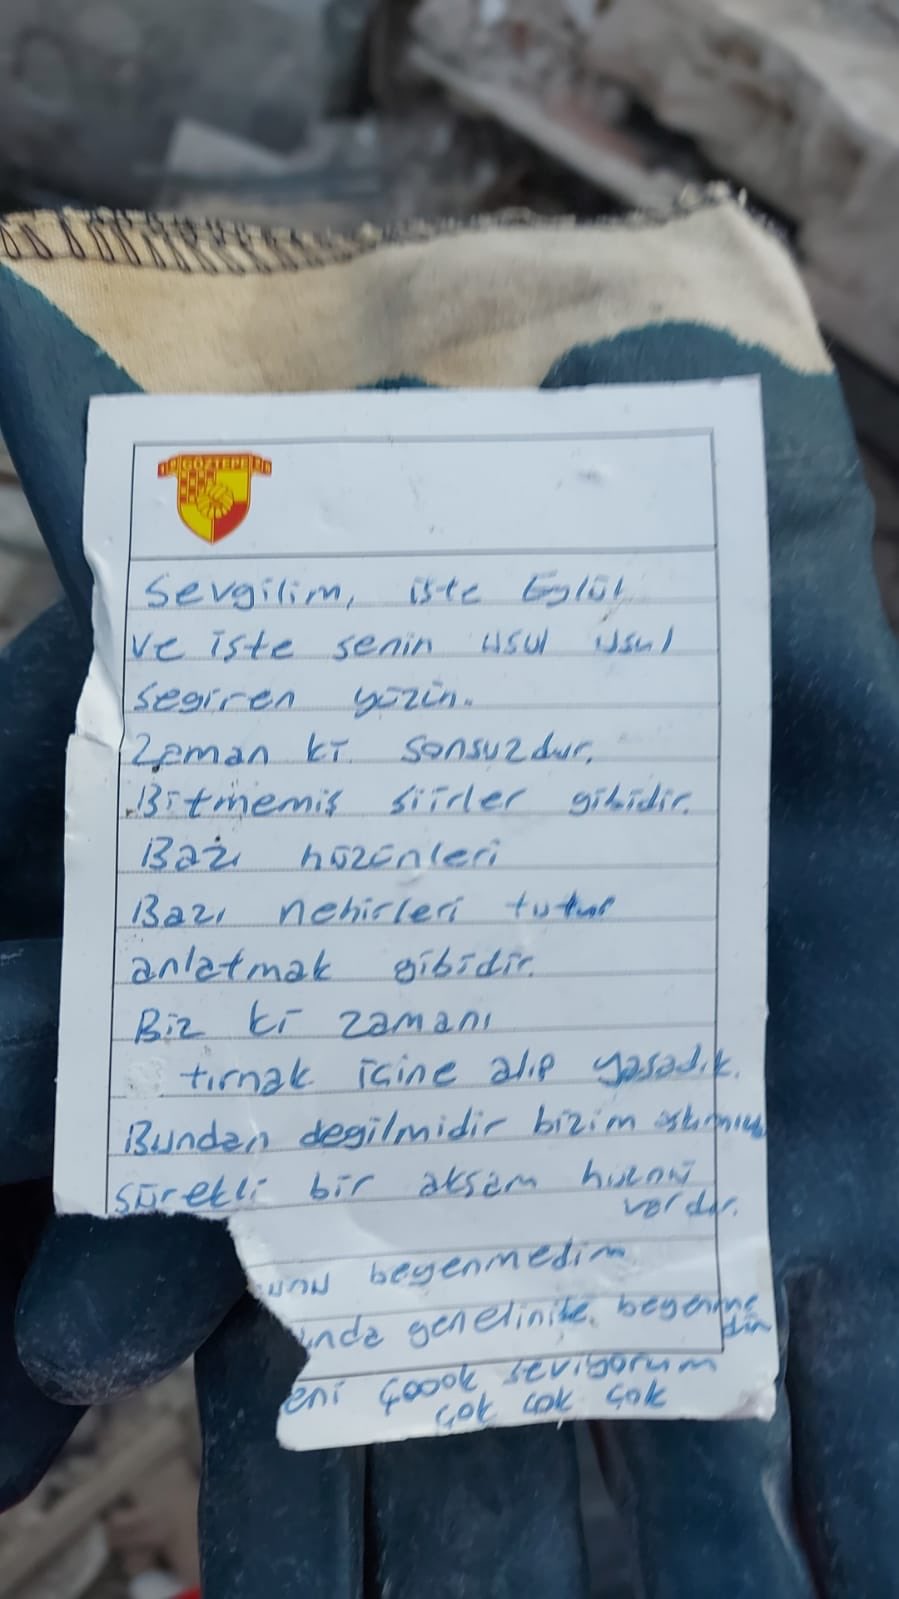 GÖZTEPE
Sevgilim, işte Eylül
ve işte senin usul usul
segiren yüzün.
Zaman ki sonsuzdur,
Bitmemiş şiirler gibidir.
Bazı hüzünleri
Bazı nehirleri tutup
anlatmak gibidir.
Biz ki zamanı
tırnak içine alıp yaşadık.
Bundan degilmidir bizim aşkımız
sürekli bir akşam hüznü
vardır.
unu begenmedim
ında genelinise begenme
dim
eni çoook seviyorum
çok çok çok